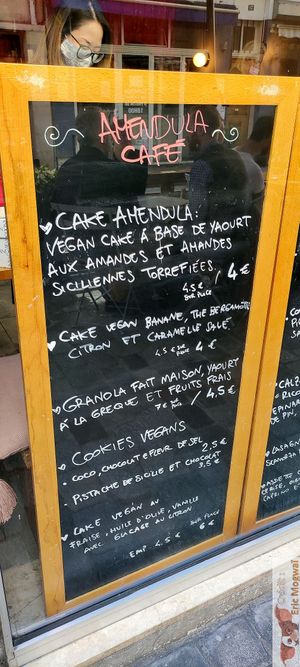 AMENDULA
CAFÉ
CAKE AMENDULA:
VEGAN CAKE À BASE DE YAOURT
AUX AMANDES ET AMANDES
SICILIENNES TORREFIÉES / 4 €
4.5 €
SUR PLACE
CAKE VEGAN BANANE, THE BERGAMOTE
CITRON ET CARAMELLE SALÉ
4.5 € SUR PLACE 4 €
GRANOLA FAIT MAISON, YAOURT
À LA GREQUE ET FRUITS FRAIS
7 € SUR PLACE / 4,5 €
COOKIES VEGANS
- COCO, CHOCOLAT E FLEUR DE SEL 2,5 €
- PISTACHE DE SICILIE ET CHOCOLAT 3,5 €
CAKE VEGAN AU
FRAISE, HUILE D'OLIVE, VANILLE
AVEC GLACAGE AU CITRON
SUR PLACE
EMP 4.5 € 6 €
Eric Mogwai